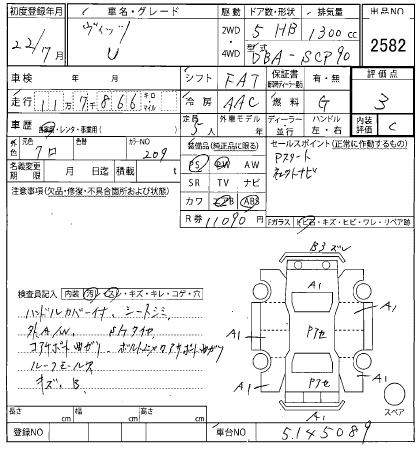 初度登録年月 車名・グレード 駆動 ドア数・形状 排気量 出品NO
22/7月 ヴィッツ 2WD 5 HB 1300 cc 2582
U 4WD 型式 DBA-SCP90
車検 年 月 シフト FAT 保証書 有・無 評価点
走行 11万7千866 キロ マイル 冷房 AAC 燃料 G 3
車歴 自家用・レンタ・事業用( ) 定員 5人 外車モデル 年 ディーラー 並行 ハンドル 左・右 内装評価 C
外色 元色 クロ 色替 カラーNO 209
装備品(純正品に限る) セールスポイント(正常に作動するもの)
PS PW AW Pスタート
名義変更期限 月 日迄 積載 t SR TV ナビ
注意事項(欠品・修復・不具合箇所および状態) カワ エアB ABS
R券 11090 円
Fガラス ヒビ・キズ・ヒビ・ワレ・リペア跡
B3 ズレ
A1
検査員記入 内装 汚・スレ・キズ・キレ・コゲ・穴
ハンドルカバーイナ、シートシミ
A1 Pアセ A1
コアサポート曲ガリ
ルーフモールズレ
A1 Pアセ A1
キズ、B
A1
スペア
長さ cm 幅 cm 高さ cm
登録NO 車台NO 5145089